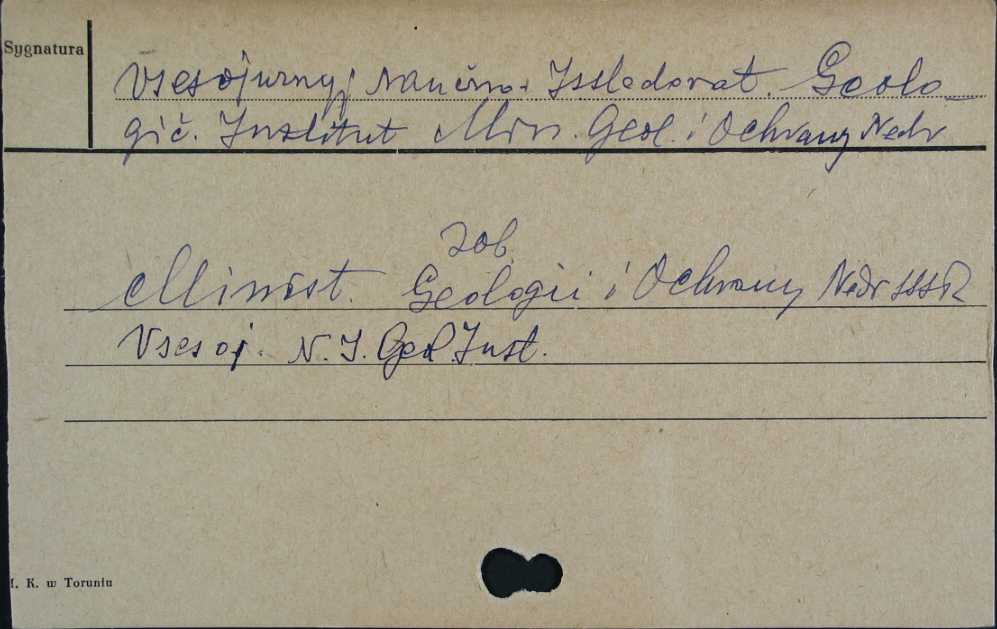 Sygnatura
Vsesojuznyj Naučno-Issledovat. Geolo
gič. Institut Min. Geol. i Ochrany Nedr
zob.
Minist. Geologii i Ochrany Nedr SSSR
Vsesoj. N. I. Geol. Inst.
M. K. w Toruniu